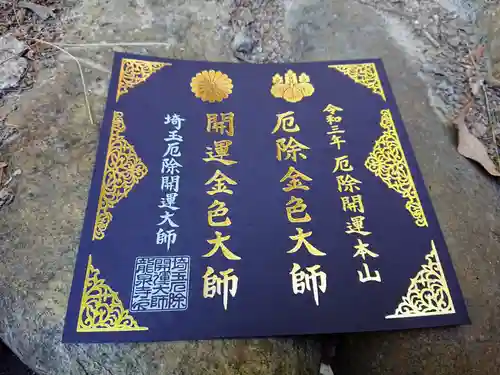 令和三年 厄除開運本山
厄除金色大師
開運金色大師
埼玉厄除開運大師
埼玉厄除
開運大師
龍泉寺